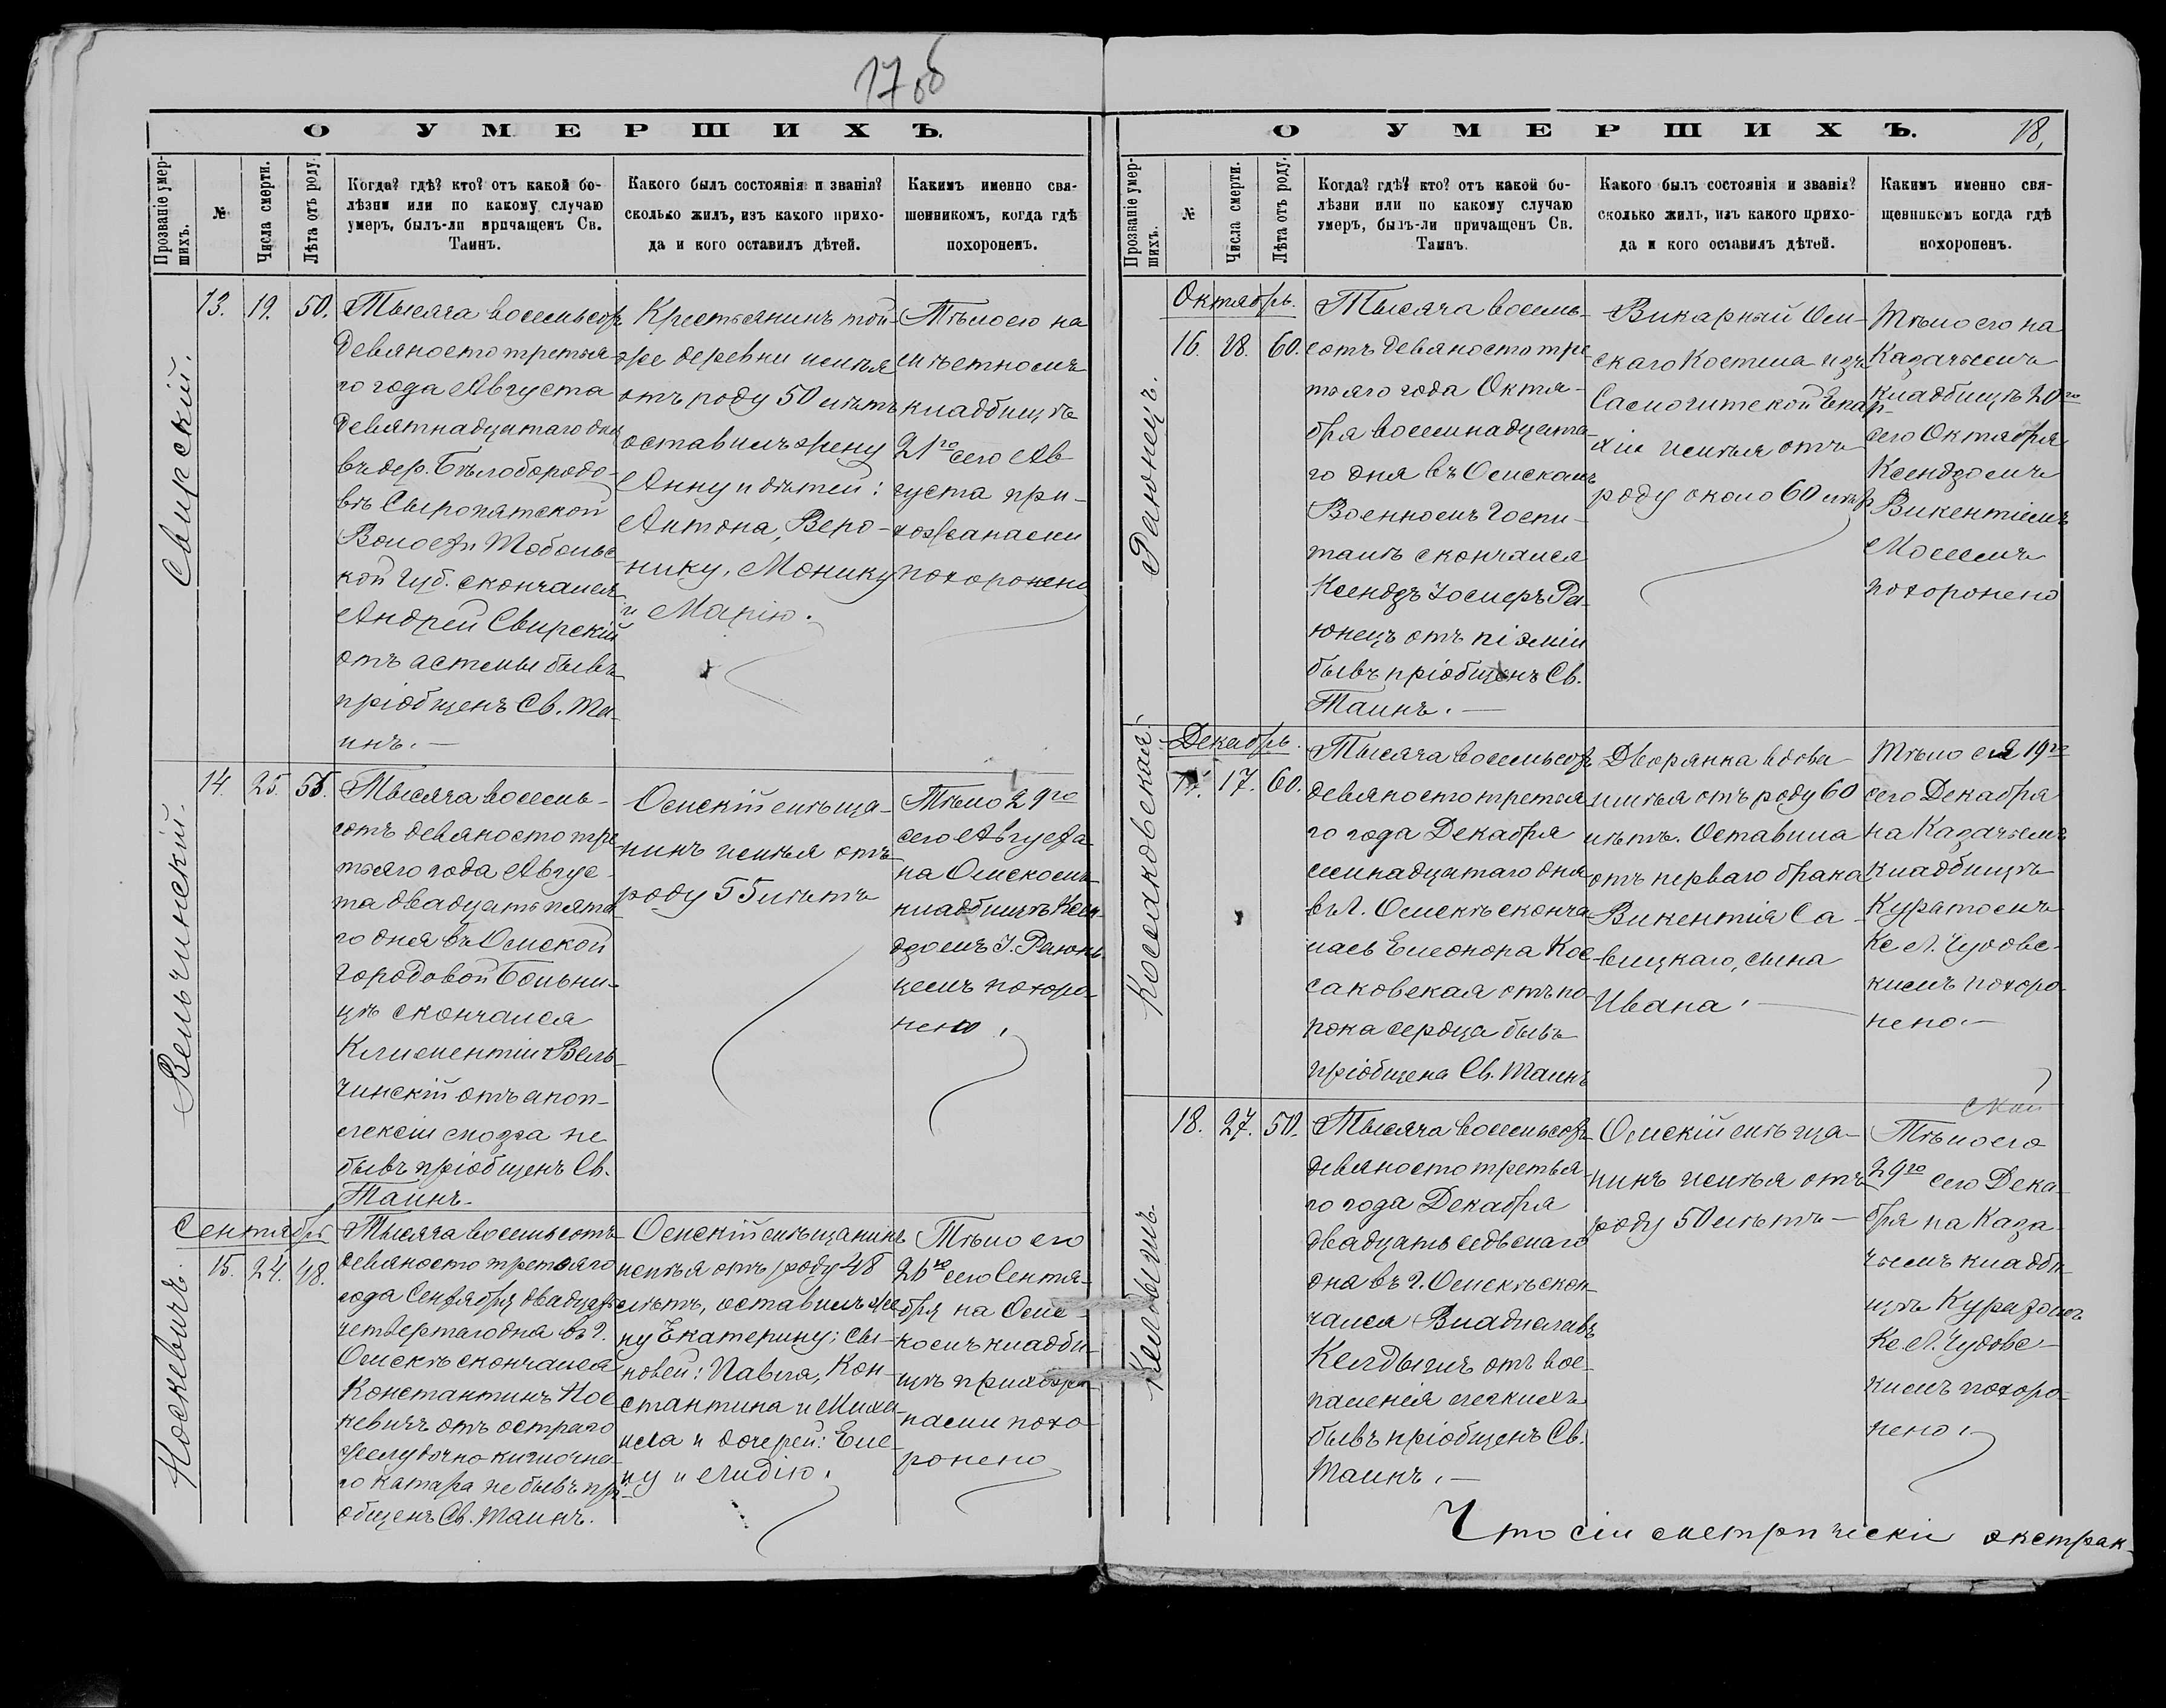 17 об
О УМЕРШИХЪ.
Прозваніе умер-
шихъ.
№
Числа смерти.
Лѣта отъ роду.
Когда? гдѣ? кто? отъ какой бо-
лѣзни или по какому случаю
умеръ, былъ-ли причащенъ Св.
Таинъ.
Какого былъ состоянія и званія?
сколько жилъ, изъ какого прихо-
да и кого оставилъ дѣтей.
Какимъ именно свя-
щенникомъ, когда гдѣ
похороненъ.
Свирскій.
13.
19.
50.
Тысяча восемьсотъ
девяносто третья-
го года Августа
девятнадцатаго дня
въ дер. Бѣлобородо-
вѣ Сыропятской
Волости Тобольс-
кой Губ. скончался
Андрей Свирскій
отъ астмы бывъ
пріобщенъ Св. Та-
инъ.—
Крестьянинъ той-
же деревни имѣя
отъ роду 50 лѣтъ
оставилъ жену
Анну и дѣтей:
Антона, Веро-
нику, Монику
и Марію.
Тѣло его на
мѣстномъ
кладбищѣ
21го сего Ав-
густа при-
хожанами
похоронено
Вельчинскій.
14.
25.
55.
Тысяча восемь-
сотъ девяносто тре-
тьяго года Авгус-
та двадцать пята-
го дня въ Омской
городовой Больни-
цѣ скончался
Климентій Вель-
чинскій отъ апоп-
лексіи мозга не
бывъ пріобщенъ Св.
Таинъ.
Омскій мѣща-
нинъ имѣя отъ
роду 55 лѣтъ
Тѣло 29го
сего Августа
на Омскомъ
кладбищѣ Ксен-
дзомъ І. Раюн-
цемъ похоро-
нено.
Сентябрь
Носкевичъ.
15.
24.
48.
Тысяча восемьсотъ
девяносто третьяго
года Сентября двадцать
четвертаго дня въ г.
Омскѣ скончался
Константинъ Нос-
кевичъ отъ остраго
желудочно-кишечна-
го катара не бывъ прі-
общенъ Св. Таинъ.
Омскій мѣщанинъ
имѣя отъ роду 48
лѣтъ, оставилъ же-
ну Екатерину: сы-
новей: Павла, Кон-
стантина и Миха-
ила и дочерей: Еле-
ну и Лидію.
Тѣло его
26го сего Сентя-
бря на Омс-
комъ кладби-
щѣ прихожа-
нами похо-
ронено
18,
О УМЕРШИХЪ.
Прозваніе умер-
шихъ.
№
Числа смерти.
Лѣта отъ роду.
Когда? гдѣ? кто? отъ какой бо-
лѣзни или по какому случаю
умеръ, былъ-ли причащенъ Св.
Таинъ.
Какого былъ состоянія и званія?
сколько жилъ, изъ какого прихо-
да и кого оставилъ дѣтей.
Какимъ именно свя-
щенникомъ когда гдѣ
похороненъ.
Октябрь.
Раюнецъ.
16.
18.
60.
Тысяча восемь-
сотъ девяносто тре-
тьяго года Октя-
бря восемнадцата-
го дня въ Омскомъ
Военномъ Госпи-
талѣ скончался
Ксендзъ Іосифъ Ра-
юнецъ отъ піэміи
бывъ пріобщенъ Св.
Таинъ.—
Викарный Ом-
скаго Костела изъ
Самогитской Епар-
хіи имѣя отъ
роду около 60 лѣтъ
Тѣло его на
Казачьемъ
кладбищѣ 20го
сего Октября
Ксендзомъ
Викентіемъ
похоронено
Декабрь.
Коссаковская.
17.
17.
60.
Тысяча восемьсотъ
девяносто третья-
го года Декабря
семнадцатаго дня
въ г. Омскѣ сконча-
лась Елеонора Кос-
саковская отъ по-
рока сердца бывъ
пріобщена Св. Таинъ
Дворянка вдова
имѣя отъ роду 60
лѣтъ. Оставила
отъ перваго брака
Викентія Са-
вицкаго, сына
Ивана.—
Тѣло ея 19го
сего Декабря
на Казачьемъ
кладбищѣ
Куратомъ
Кс. Л. Чудовс-
кимъ похоро-
нено.—
Келдышъ.
18.
27.
50.
Тысяча восемьсотъ
девяносто третья-
го года Декабря
двадцать седьмаго
дня въ г. Омскѣ скон-
чался Владиславъ
Келдышъ отъ вос-
паленія легкихъ
бывъ пріобщенъ Св.
Таинъ.—
Омскій мѣща-
нинъ имѣя отъ
роду 50 лѣтъ—
Тѣло его
29го сего Дека-
бря на Каза-
чьемъ кладби-
щѣ Куратомъ
Кс. Л. Чудовс-
кимъ похоро-
нено.
Что сіи метрическіи экстрак-